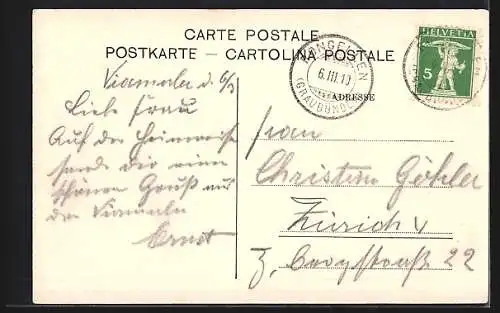 CARTE POSTALE
POSTKARTE – CARTOLINA POSTALE
HELVETIA
5
6.III.13
(GRAUBÜND
ADRESSE
Viamala d. 6/3
Liebe Frau
Auf der Heimreise
sende dir einen
schönen Gruß aus
der Viamala
Ernst
Frau
Christian Göhler
Zürich V
22